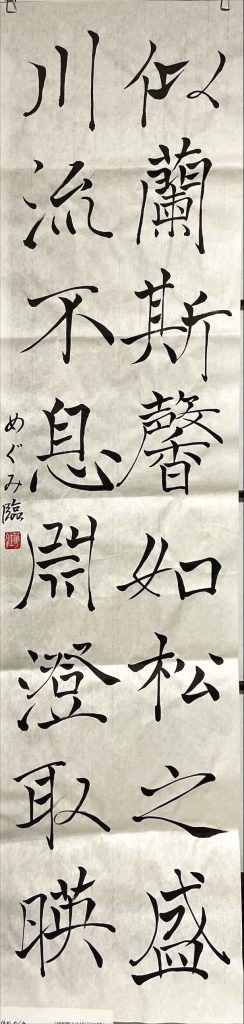 似蘭斯馨如松之盛
川流不息淵澄取暎
めぐみ臨